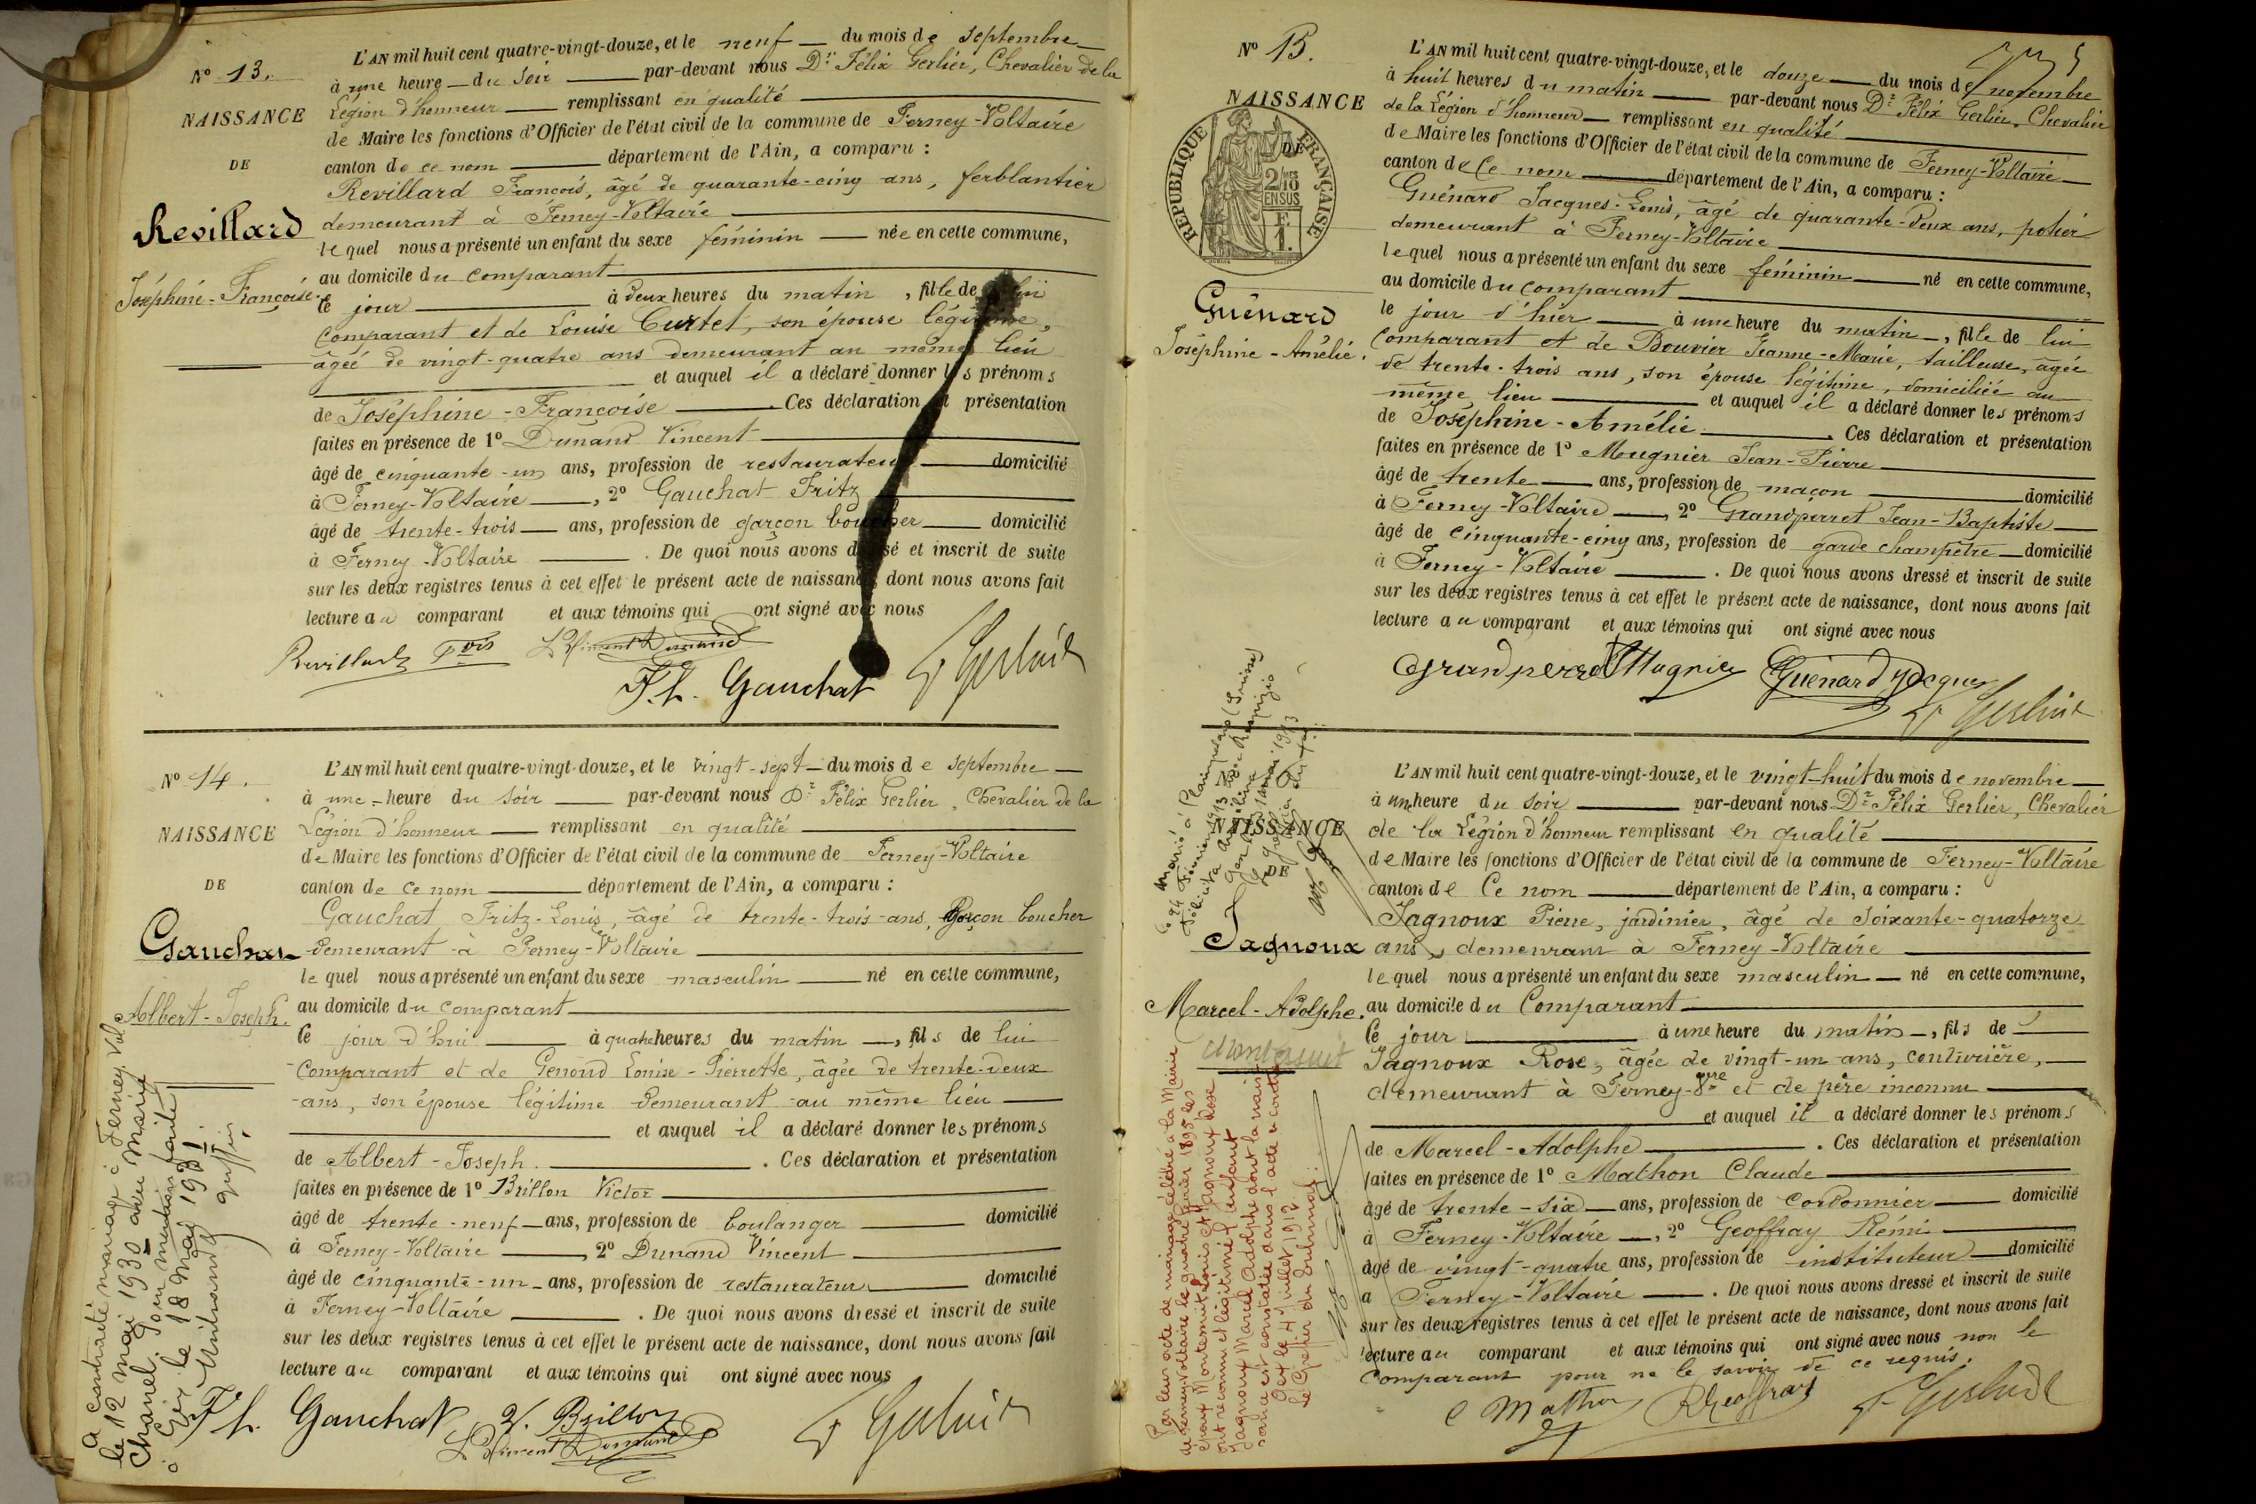 N° 13.
NAISSANCE
DE
Revillard
Joséphine-Françoise.
L'AN mil huit cent quatre-vingt-douze, et le neuf du mois de septembre
à une heure du soir par-devant nous Dr Félix Gerlier, Chevalier de la
Légion d'honneur remplissant en qualité
de Maire les fonctions d'Officier de l'état civil de la commune de Ferney-Voltaire
canton de ce nom département de l'Ain, a comparu :
Revillard François, âgé de quarante-cinq ans, ferblantier
demeurant à Ferney-Voltaire
lequel nous a présenté un enfant du sexe féminin née en cette commune,
au domicile du comparant
ce jour à deux heures du matin, fille de lui
comparant et de Louise Curtet, son épouse légitime,
âgée de vingt-quatre ans demeurant au même lieu
et auquel il a déclaré donner les prénoms
de Joséphine-Françoise. Ces déclaration et présentation
faites en présence de 1° Dunand Vincent
âgé de cinquante-un ans, profession de restaurateur domicilié
à Ferney-Voltaire, 2° Gauchat Fritz
âgé de trente-trois ans, profession de garçon boucher domicilié
à Ferney-Voltaire. De quoi nous avons dressé et inscrit de suite
sur les deux registres tenus à cet effet le présent acte de naissance, dont nous avons fait
lecture au comparant et aux témoins qui ont signé avec nous
Revillard Fois Vincent Dunand
F. L. Gauchat F Gerlier
N° 14.
NAISSANCE
DE
Gauchat
Albert-Joseph.
L'AN mil huit cent quatre-vingt-douze, et le vingt-sept du mois de septembre
à une heure du soir par-devant nous Dr Félix Gerlier, Chevalier de la
Légion d'honneur remplissant en qualité
de Maire les fonctions d'Officier de l'état civil de la commune de Ferney-Voltaire
canton de ce nom département de l'Ain, a comparu :
Gauchat Fritz-Louis, âgé de trente-trois ans, garçon boucher
demeurant à Ferney-Voltaire
lequel nous a présenté un enfant du sexe masculin né en cette commune,
au domicile du comparant
ce jour d'hui à quatre heures du matin, fils de lui
comparant et de Genoud Louise-Pierrette, âgée de trente-deux
ans, son épouse légitime demeurant au même lieu
et auquel il a déclaré donner les prénoms
de Albert-Joseph. Ces déclaration et présentation
faites en présence de 1° Brillon Victor
âgé de trente-neuf ans, profession de boulanger domicilié
à Ferney-Voltaire, 2° Dunand Vincent
âgé de cinquante-un ans, profession de restaurateur domicilié
à Ferney-Voltaire. De quoi nous avons dressé et inscrit de suite
sur les deux registres tenus à cet effet le présent acte de naissance, dont nous avons fait
lecture au comparant et aux témoins qui ont signé avec nous
F. L. Gauchat V. Brillon F Gerlier
Vincent Dunand
a contracté mariage à Ferney Vol
le 12 mai 1930 avec Marie
Chanel. Pour mention faite
à Gex le 18 Mai 1931.
N° 15.
NAISSANCE
DE
RÉPUBLIQUE FRANÇAISE
2/10 EN SUS
F. 1.
Guénard
Joséphine-Amélie.
L'AN mil huit cent quatre-vingt-douze, et le douze du mois de novembre
à huit heures du matin par-devant nous Dr Félix Gerlier, Chevalier
de la Légion d'honneur remplissant en qualité
de Maire les fonctions d'Officier de l'état civil de la commune de Ferney-Voltaire
canton de Ce nom département de l'Ain, a comparu :
Guénard Jacques-Louis, âgé de quarante-deux ans, potier
demeurant à Ferney-Voltaire
lequel nous a présenté un enfant du sexe féminin né en cette commune,
au domicile du comparant
le jour d'hier à une heure du matin, fille de lui
comparant et de Bouvier Jeanne-Marie, tailleuse, âgée
de trente-trois ans, son épouse légitime, domiciliée au
même lieu et auquel il a déclaré donner les prénoms
de Joséphine-Amélie. Ces déclaration et présentation
faites en présence de 1° Mougnier Jean-Pierre
âgé de trente ans, profession de maçon domicilié
à Ferney-Voltaire, 2° Grandperret Jean-Baptiste
âgé de cinquante-cinq ans, profession de garde champêtre domicilié
à Ferney-Voltaire. De quoi nous avons dressé et inscrit de suite
sur les deux registres tenus à cet effet le présent acte de naissance, dont nous avons fait
lecture au comparant et aux témoins qui ont signé avec nous
Guénard Jacques
F Gerlier
NAISSANCE
DE
Jagnoux
Marcel-Adolphe.
L'AN mil huit cent quatre-vingt-douze, et le vingt-huit du mois de novembre
à une heure du soir par-devant nous Dr Félix Gerlier, Chevalier
de la Légion d'honneur remplissant en qualité
de Maire les fonctions d'Officier de l'état civil de la commune de Ferney-Voltaire
canton de Ce nom département de l'Ain, a comparu :
Jagnoux Pierre, jardinier, âgé de soixante-quatorze
ans, demeurant à Ferney-Voltaire
lequel nous a présenté un enfant du sexe masculin né en cette commune,
au domicile du Comparant
ce jour à une heure du matin, fils de
Jagnoux Rose, âgée de vingt-un ans, couturière,
demeurant à Ferney-Vre et de père inconnu
et auquel il a déclaré donner les prénoms
de Marcel-Adolphe. Ces déclaration et présentation
faites en présence de 1° Mathon Claude
âgé de trente-six ans, profession de cordonnier domicilié
à Ferney-Voltaire, 2° Geoffray Rémi
âgé de vingt-quatre ans, profession de instituteur domicilié
à Ferney-Voltaire. De quoi nous avons dressé et inscrit de suite
sur les deux registres tenus à cet effet le présent acte de naissance, dont nous avons fait
lecture au comparant et aux témoins qui ont signé avec nous non le
comparant pour ne le savoir de ce requis.
C Mathon R Geoffray F Gerlier
Par leur acte de mariage célébré à la Mairie
de Ferney-Voltaire le quatre février 1895 les
époux Montessuit Louis et Jagnoux Rose
ont reconnu et légitimé l'enfant
Jagnoux Marcel Adolphe dont la nais
sance est constatée dans l'acte ci contre
Gex le 4 juillet 1912
Le Greffier du tribunal